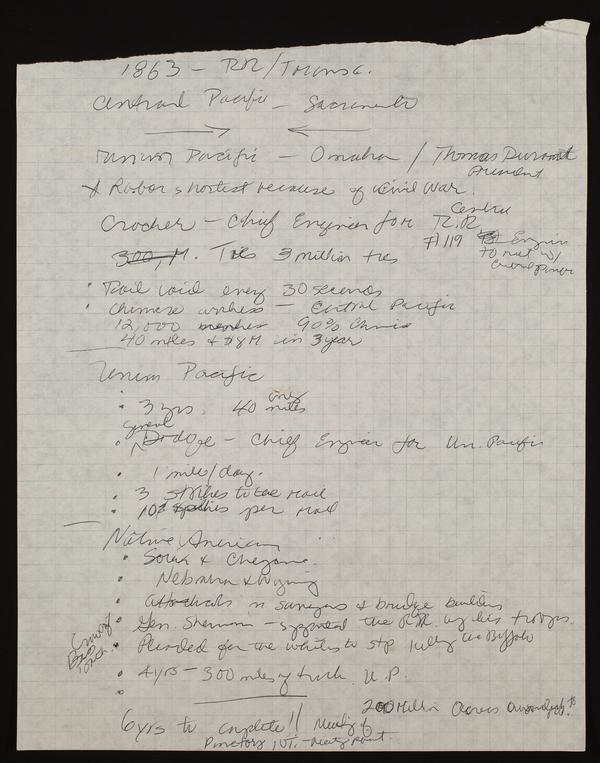 1863 - RR/Transc.
Central Pacific - Sacramento
Union Pacific - Omaha / Thomas Durant
President
* Labor shortest because of Civil War.
Crocker - Chief Engineer for Central
R.R
300, M. Ties 3 million ties
#119 Engine
to meet w/
Rail laid every 30 seconds
Chinese workers - Central Pacific
12,000 members 90% Chinese
40 miles & $8M in 3 year
Union Pacific
3 yrs, only 40 miles
General
Dodge - Chief Engineer for Un. Pacific
1 mile/day.
3 strikes to the rail
10 spikes per rail
Native American
Soiux & Cheyenne.
Nebraska & Wyming
attacks on surveyors & bridge builders
Gen. Sherman - supported the R.R. w/ his troops.
Pleaded for the whites to stp killing the Buffalo
4 yrs - 300 miles of track U.P.
200 Million Acres
6 yrs to complete!! Meeting of
Promctory, UT. - meeting point.